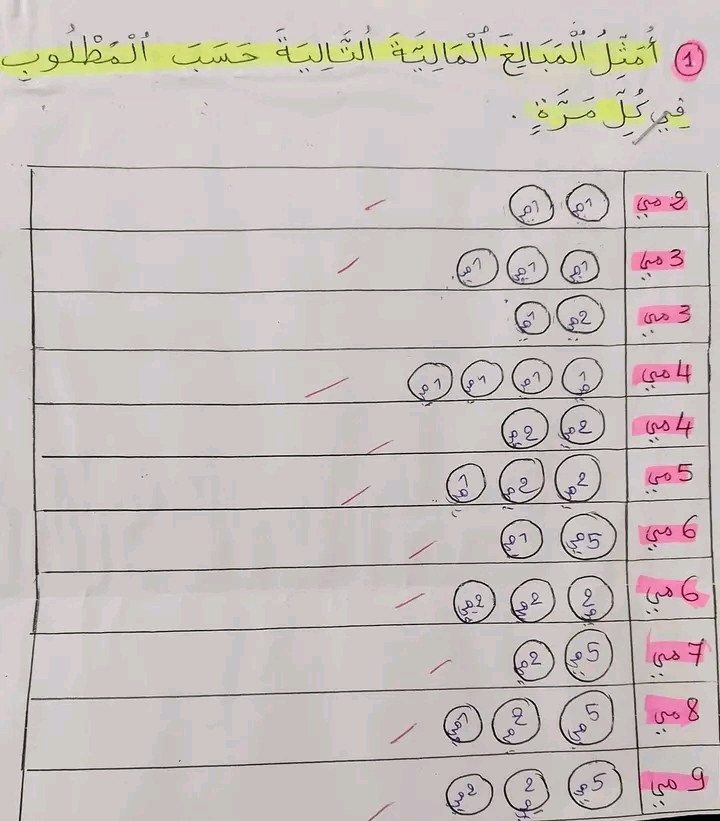 1 أُمَثِّلُ ٱلْمَبَالِغَ ٱلْمَالِيَّةَ ٱلتَّالِيَةَ حَسَبَ ٱلْمَطْلُوبِ
فِي كُلِّ مَرَّةٍ.
2 مي 1مي 1مي
3 مي 1مي 1مي 1مي
3 مي 2مي 1مي
4 مي 1مي 1مي 1مي 1مي
4 مي 2مي 2مي
5 مي 2مي 2مي 1مي
6 مي 5مي 1مي
6 مي 2مي 2مي 2مي
7 مي 5مي 2مي
8 مي 5مي 2مي 1مي
9 مي 5مي 2مي 2مي